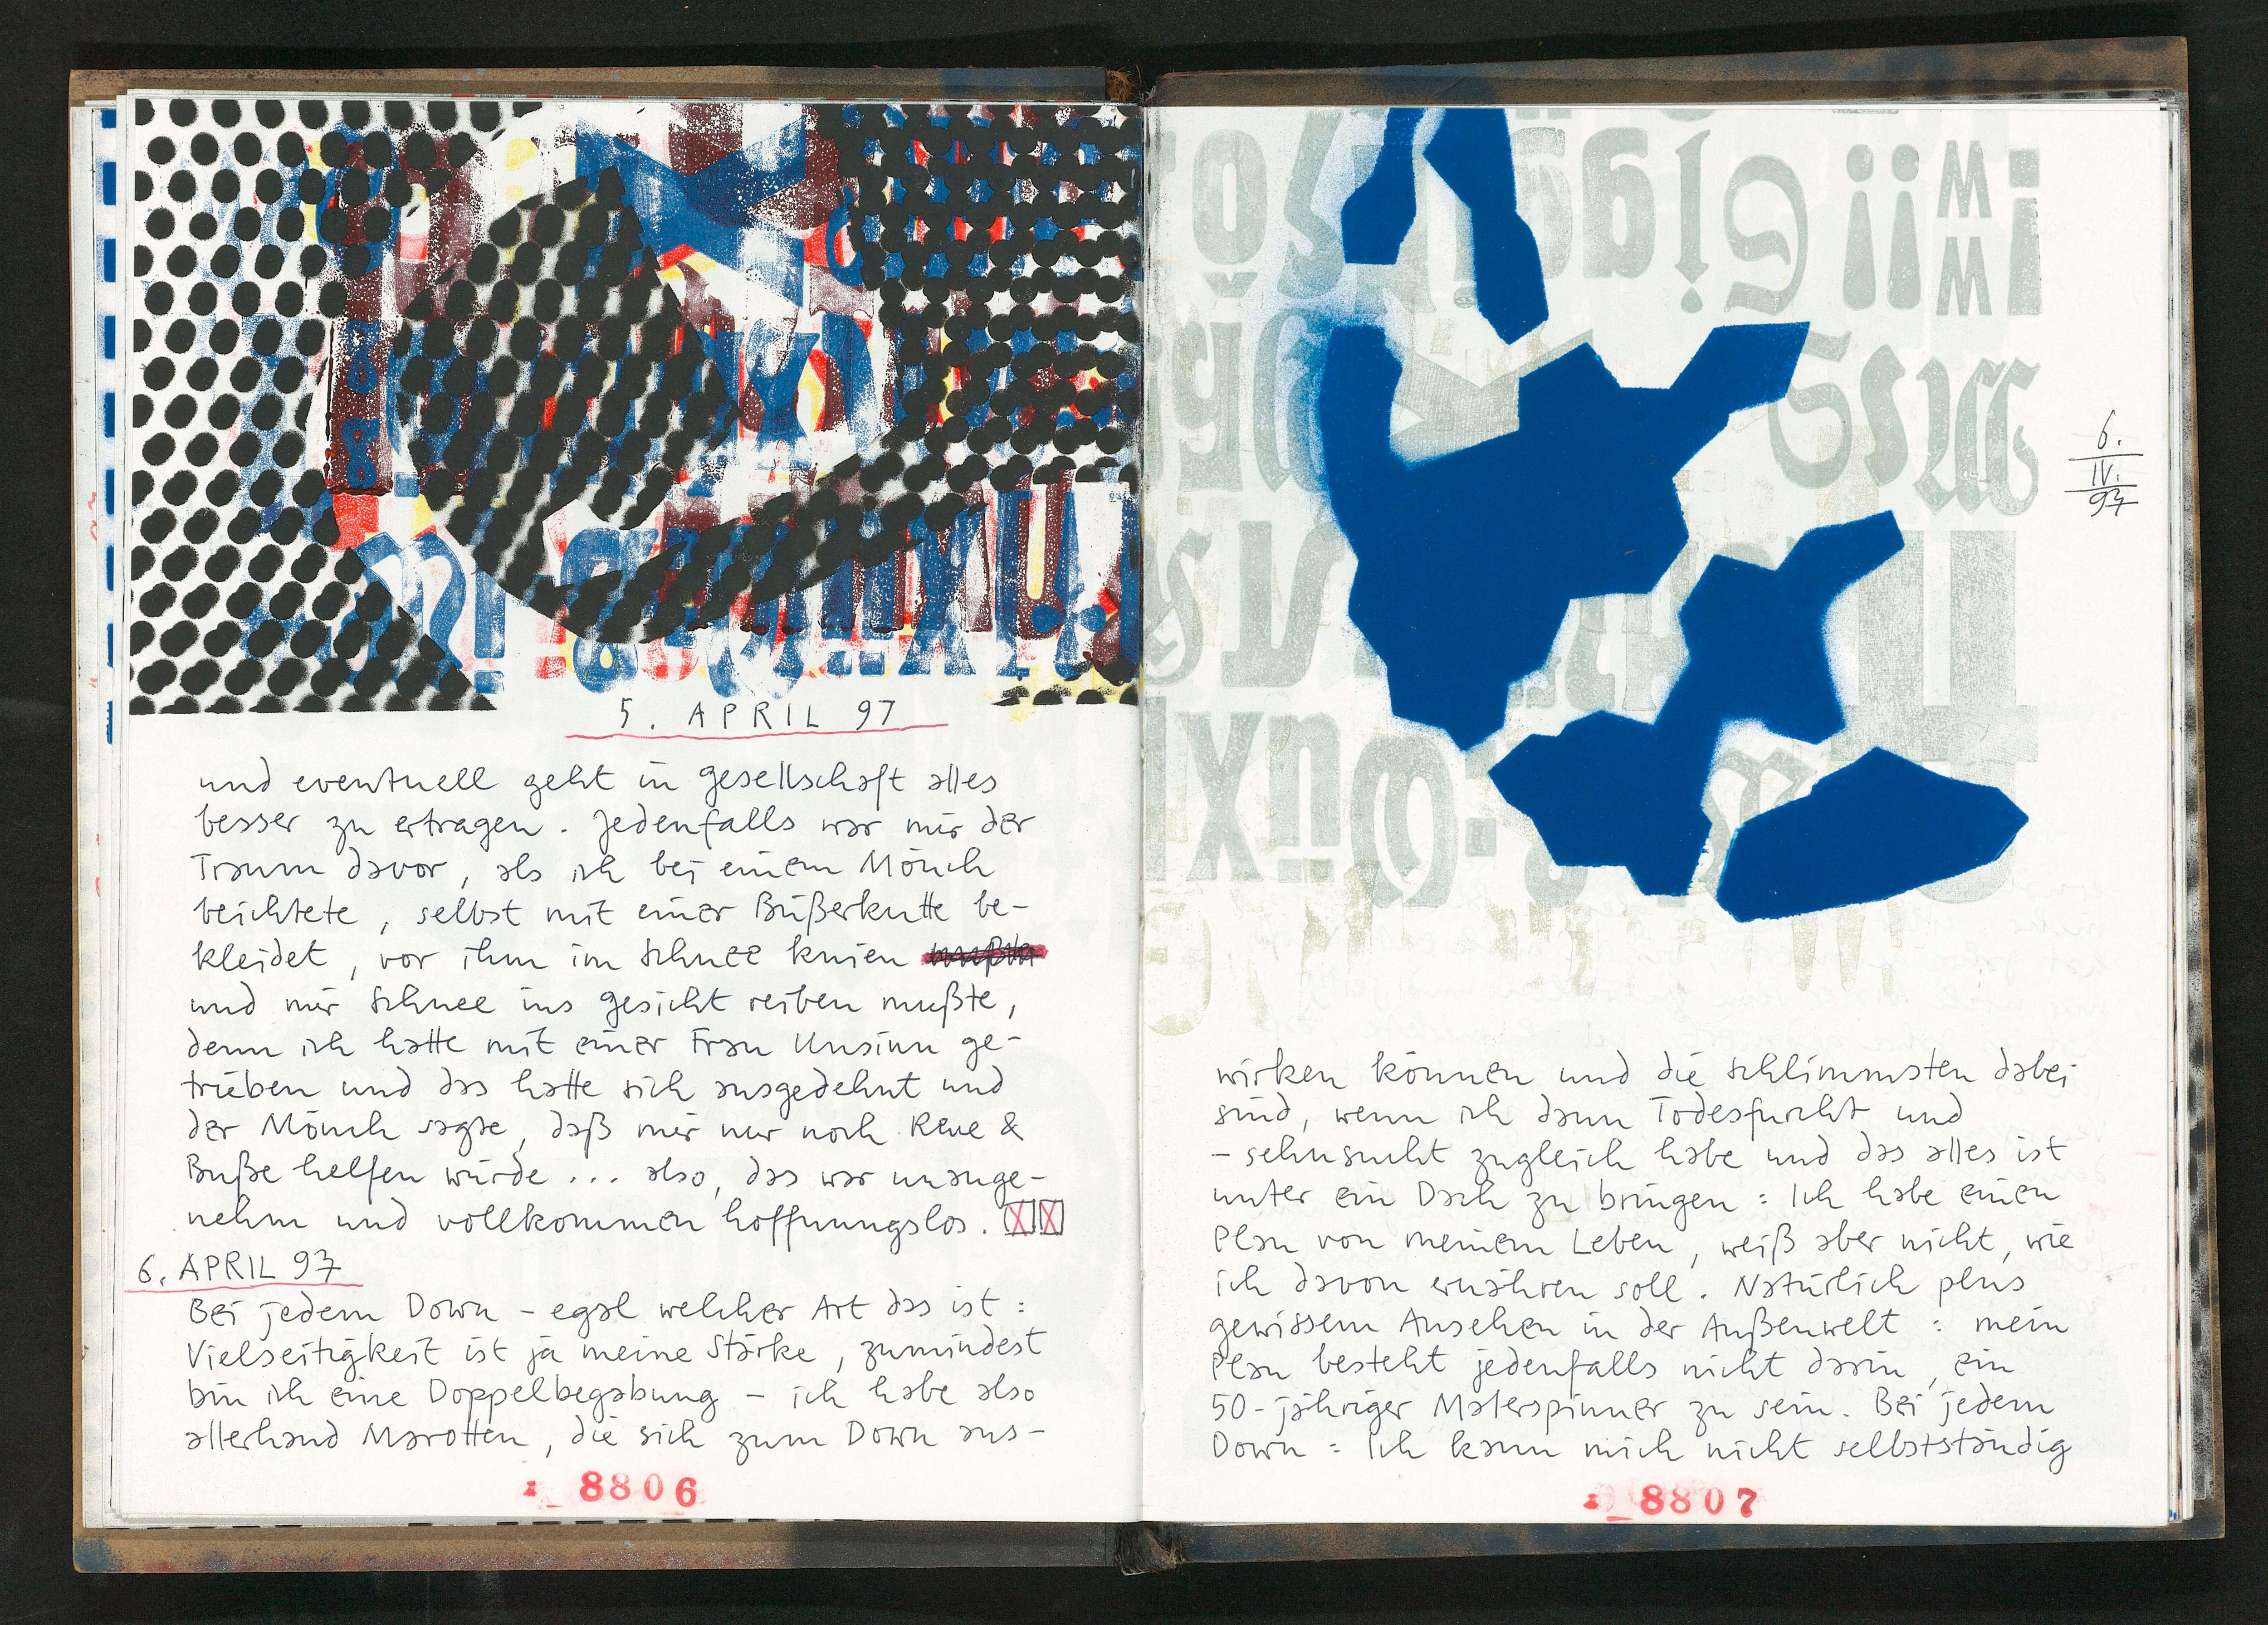 5. APRIL 97
und eventuell geht in gesellschaft alles
besser zu ertragen. Jedenfalls war mir der
Traum davor, als ich bei einem Mönch
beichtete, selbst mit einer Büßerkutte be-
kleidet, vor ihm im Schnee knien
und mir Schnee ins gesicht reiben mußte,
denn ich hatte mit einer Frau Unsinn ge-
trieben und das hatte sich ausgedehnt und
der Mönch sagte, daß mir nur noch Reue &
Buße helfen würde ... also, das war unange-
nehm und vollkommen hoffnungslos.
6. APRIL 97
Bei jedem Down - egal welcher Art das ist:
Vielseitigkeit ist ja meine Stärke, zumindest
bin ich eine Doppelbegabung - ich habe also
allerhand Marotten, die sich zum Down aus-
8806
6.
IV.
97
wirken können und die schlimmsten dabei
sind, wenn ich dann Todesfurcht und
-sehnsucht zugleich habe und das alles ist
unter ein Dach zu bringen: Ich habe einen
Plan von meinem Leben, weiß aber nicht, wie
ich davon ernähren soll. Natürlich plus
gewissem Ansehen in der Außenwelt: mein
Plan besteht jedenfalls nicht darin, ein
50-jähriger Malerspinner zu sein. Bei jedem
Down: Ich kann mich nicht selbstständig
8807